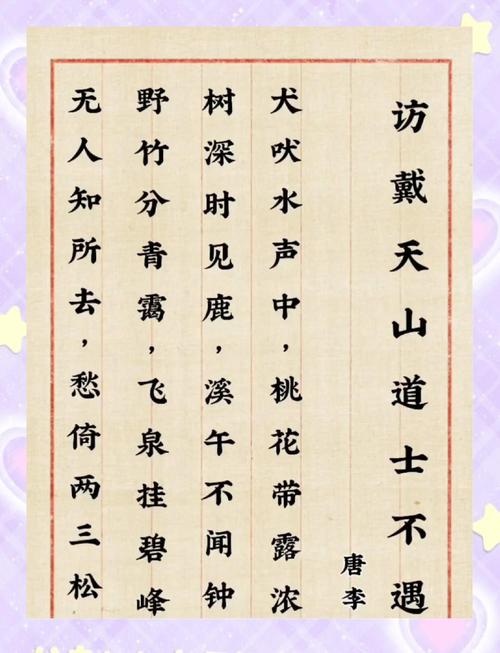 访戴天山道士不遇
唐李
犬吠水声中，桃花带露浓
树深时见鹿，溪午不闻钟
野竹分青霭，飞泉挂碧峰
无人知所去，愁倚两三松